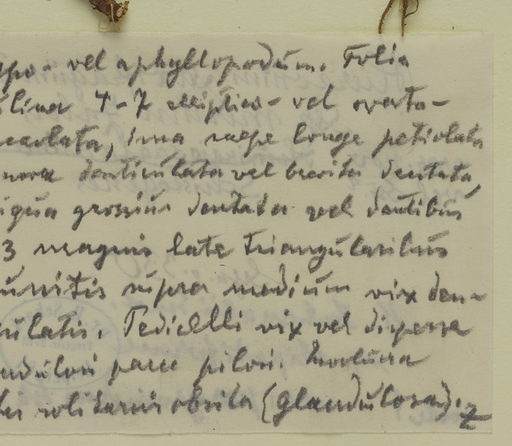 vel aphyllopodum. Folia
4-7 elliptica- vel ovato-
ceolata, ima saepe longe petiolata
denticulata vel breviter dentata,
grossius dentata vel dentibus
3 magnis late triangularibus
supra medium vix den-
culatis. Pedicelli vix vel disperse
parce pilosi. Involucra
solitariis obsita (glandulosa).